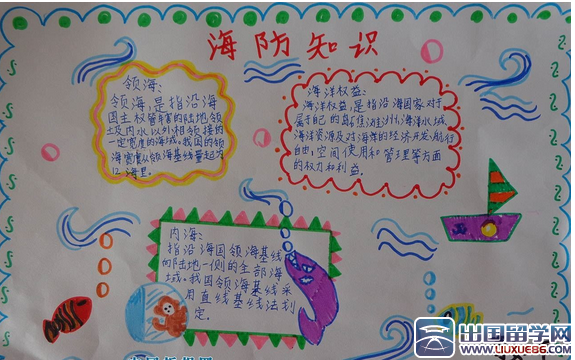 海防知识
领海:
领海,是指沿海
国主权管辖的陆地领
土及内水以外和领接的
一定宽度的海域。我国的领
海宽度从领海基线量起为
12海里。
海洋权益:
海洋权益,是指沿海国家对于
属自己的岛礁
海洋水域,
海洋资源及对海洋的经济开发、航行
自由,空间使用和管理等方面
的权力和利益。
内海:
指沿海国领海基线
的陆地一侧的全部海
域。我国领海基线采
用直线基线法划
定。
出国留学网
www.liuxue86.com